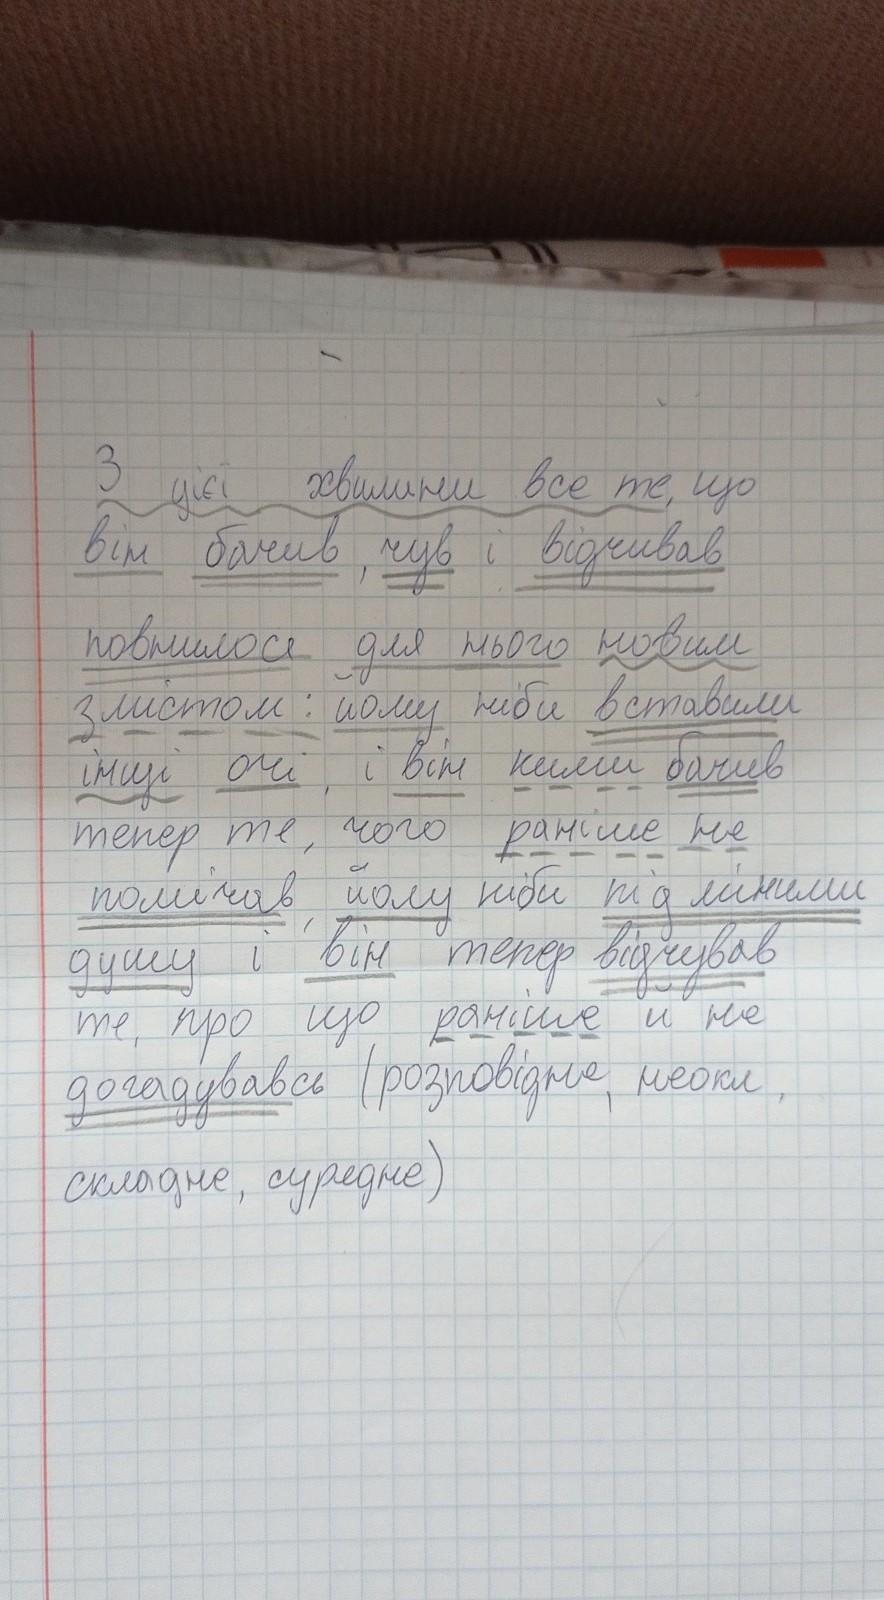 З цієї хвилини все те, що
він бачив, чув і відчивав
повнилося для нього новим
змістом: йому ніби вставили
інші очі, і він ними бачив
тепер те, чого раніше не
помічав, йому ніби підмінили
душу і він тепер відчував
те, про що раніше й не
догадувавсь (розповідне, неокл,
складне, сурядне)